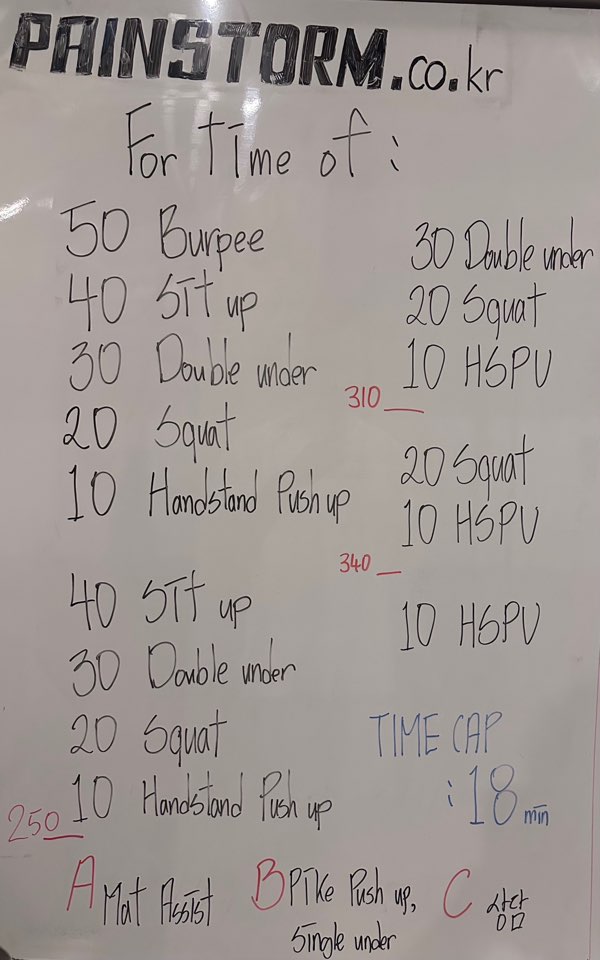 PAINSTORM.co.kr
For time of :
50 Burpee
40 Sit up
30 Double under
20 Squat
10 Handstand Push up
40 Sit up
30 Double under
20 Squat
250 10 Handstand Push up
30 Double under
20 Squat
10 HSPU
310
20 Squat
10 HSPU
340
10 HSPU
TIME CAP
: 18 min
A Mat Assist
B Pike Push up,
Single under
C 상담